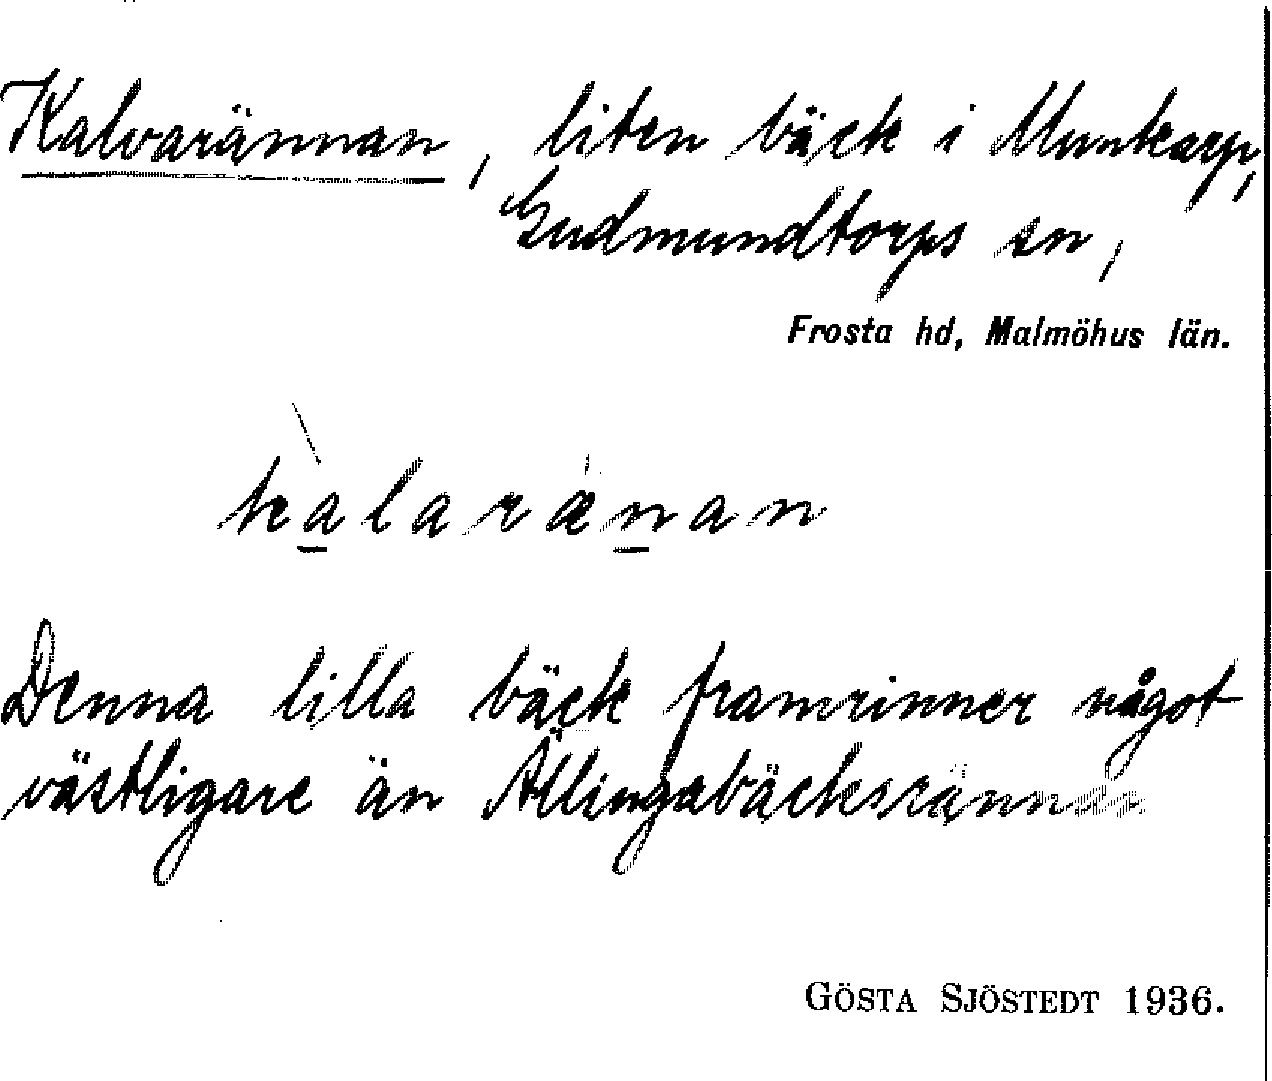 Kalvarännan, liten bäck i Munkarp,
Gudmundtorps sn,
Frosta hd, Malmöhus län.
kàlarǽnan
Denna lilla bäck framrinner något
västligare än Ällingabäcksrännan
GÖSTA SJÖSTEDT 1936.